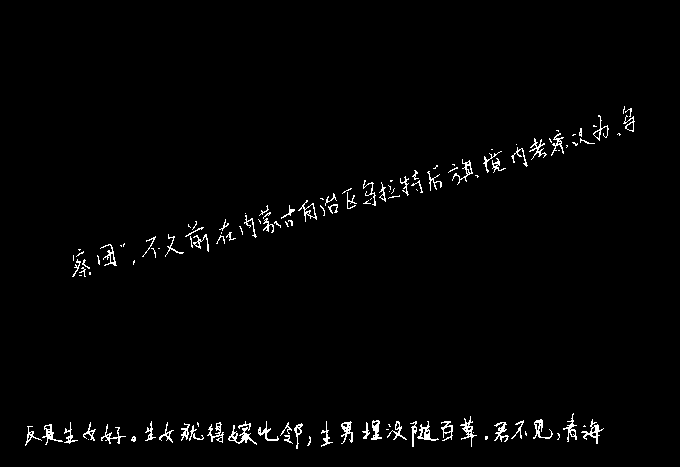 察团”,不久前在内蒙古自治区乌拉特后旗境内考察认为,乌
反是生女好。生女就得嫁比邻,生男埋没随百草。君不见,青海